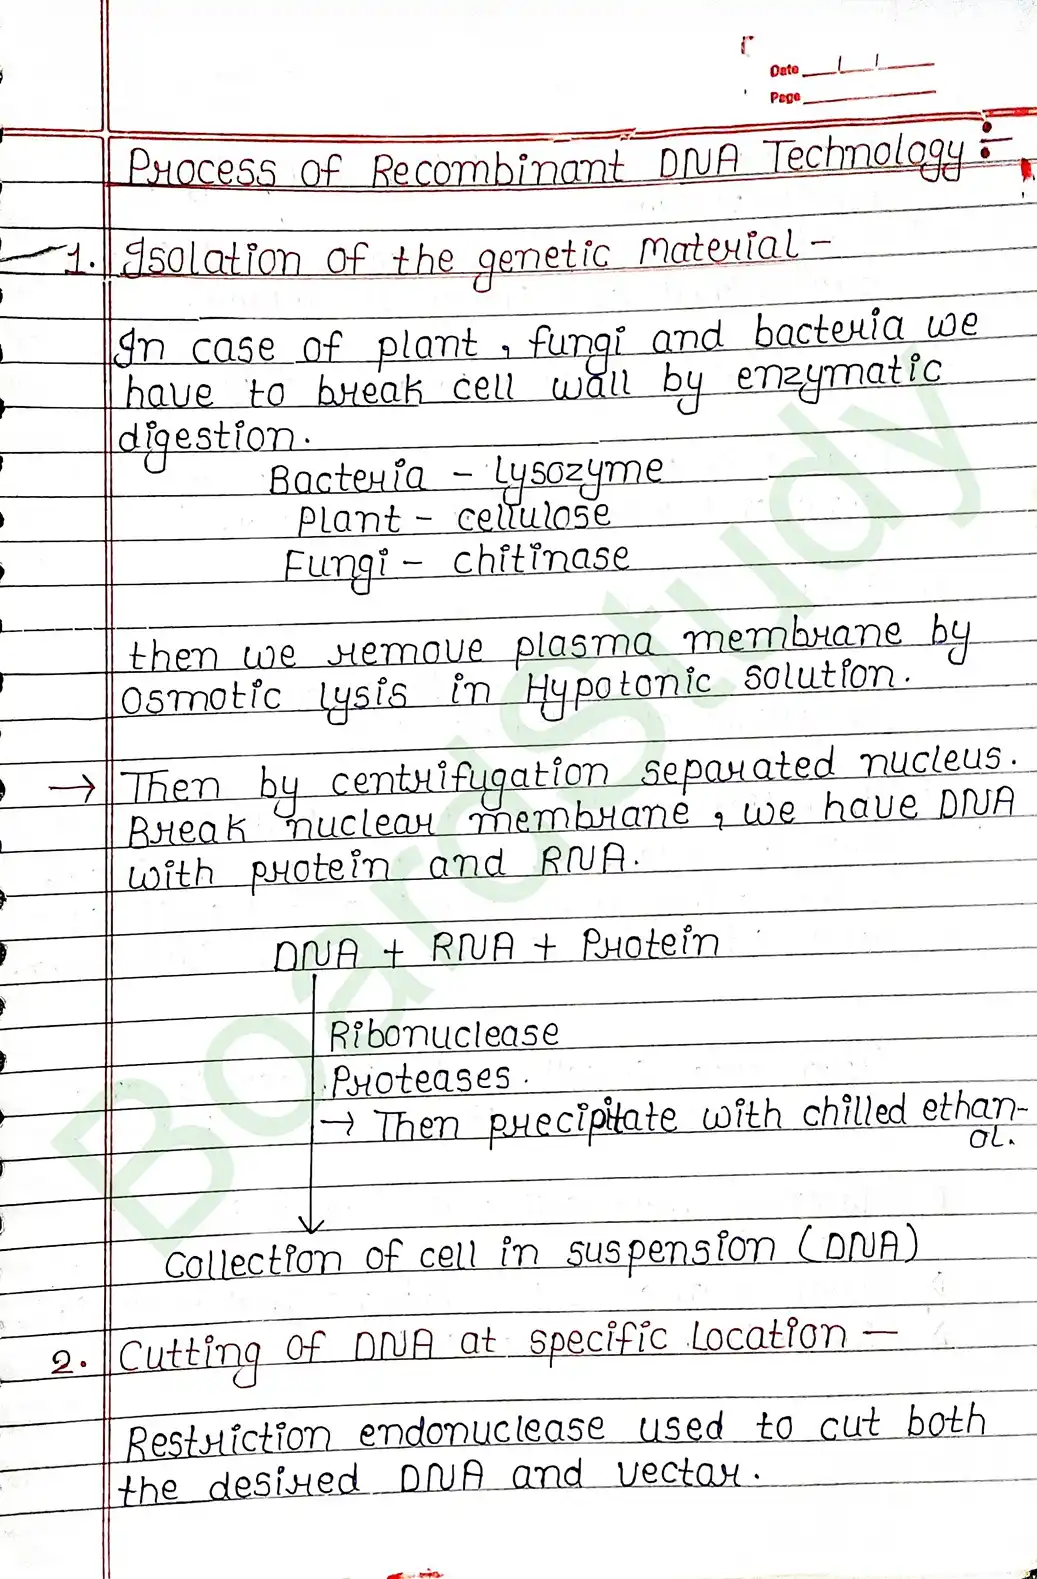 Date
Page
Process of Recombinant DNA Technology :-
1. Isolation of the genetic material -
In case of plant, fungi and bacteria we
have to break cell wall by enzymatic
digestion.
Bacteria - Lysozyme
Plant - cellulose
Fungi - chitinase
then we remove plasma membrane by
osmotic lysis in Hypotonic solution.
→ Then by centrifugation separated nucleus.
Break nuclear membrane, we have DNA
with protein and RNA.
DNA + RNA + Protein
Ribonuclease
Proteases.
→ Then precipitate with chilled ethan-
ol.
Collection of cell in suspension (DNA)
2. Cutting of DNA at specific Location -
Restriction endonuclease used to cut both
the desired DNA and vector.
BoardStudy